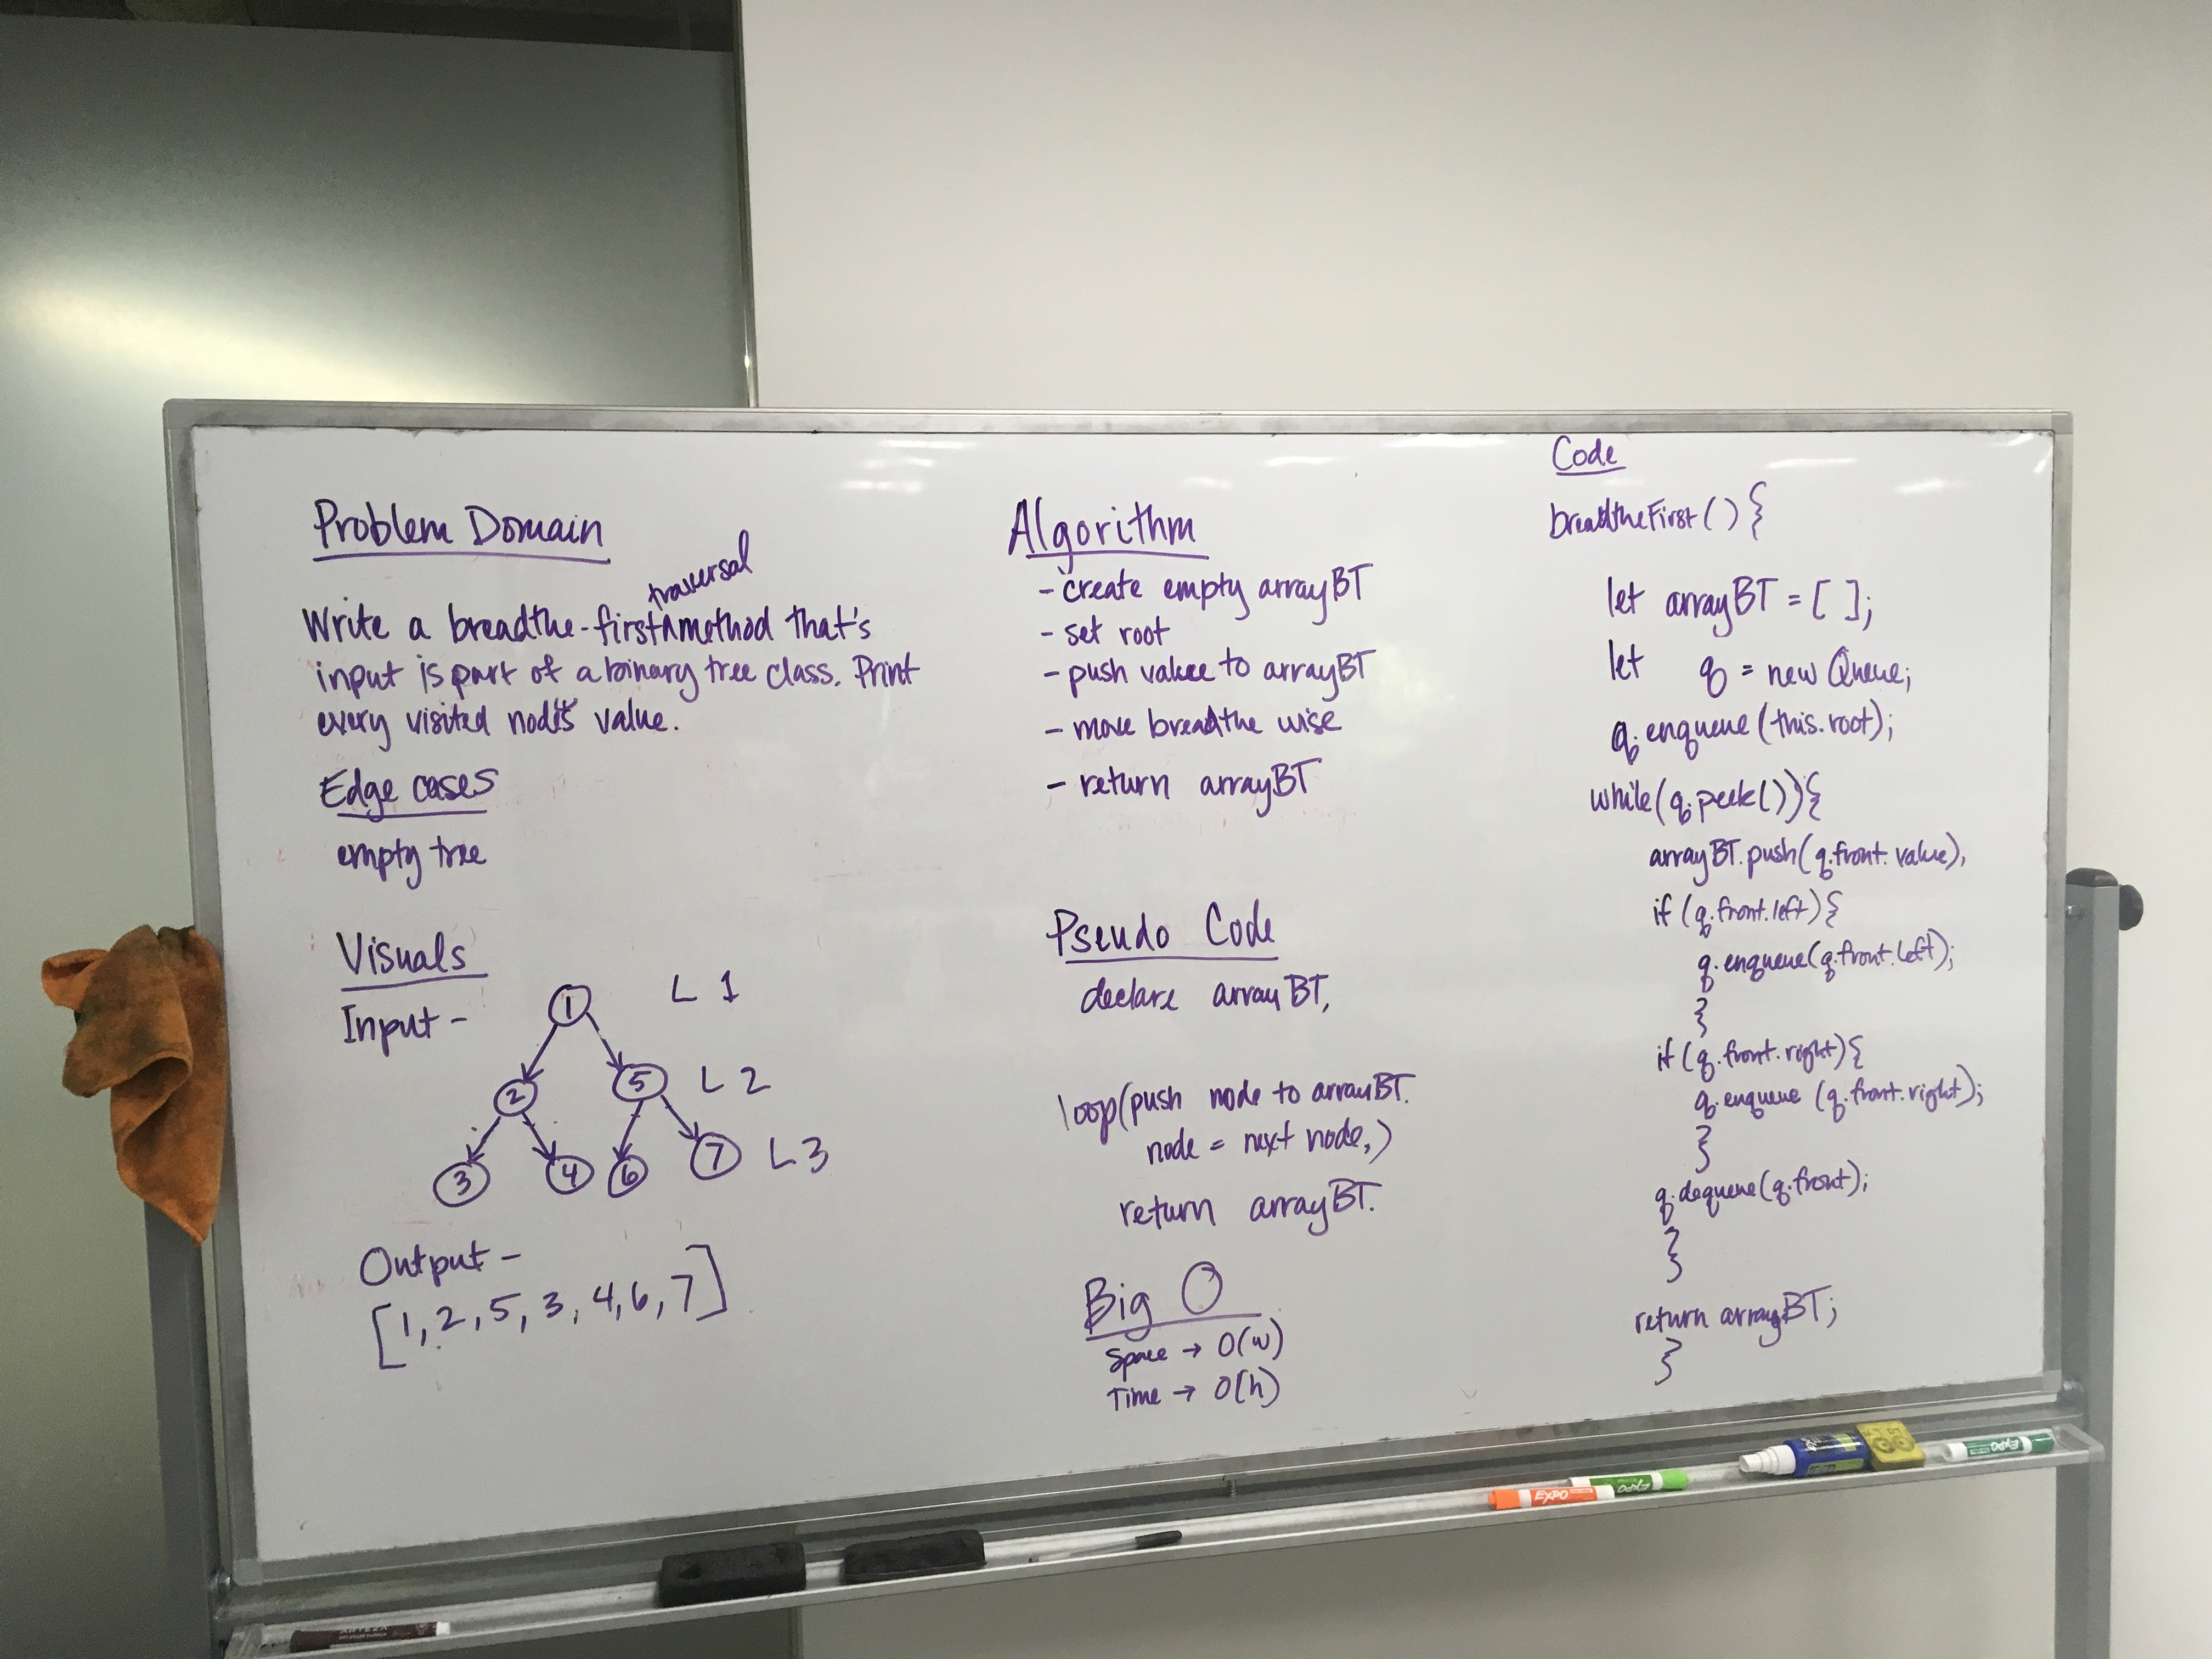 Problem Domain
traversal
Write a breadthe-first^method that's
input is part of a binary tree class. Print
every visited node's value.
Edge cases
empty tree
Visuals
Input -
1
L 1
2
5
L 2
3
4
6
7
L 3
Output -
[1, 2, 5, 3, 4, 6, 7]
Algorithm
- create empty arrayBT
- set root
- push value to arrayBT
- move breadthe wise
- return arrayBT
Pseudo Code
declare arrayBT,
loop(push node to arrayBT.
node = next node,)
return arrayBT.
Big O
Space → O(w)
Time → O(h)
Code
breadtheFirst() {
let arrayBT = [ ];
let q = new Queue;
q.enqueue(this.root);
while(q.peek()){
arrayBT.push(q.front.value),
if (q.front.left){
q.enqueue(q.front.left);
}
if (q.front.right){
q.enqueue (q.front.right);
}
q.dequeue(q.front);
}
return arrayBT;
}
EXPO
EXPO
EXPO